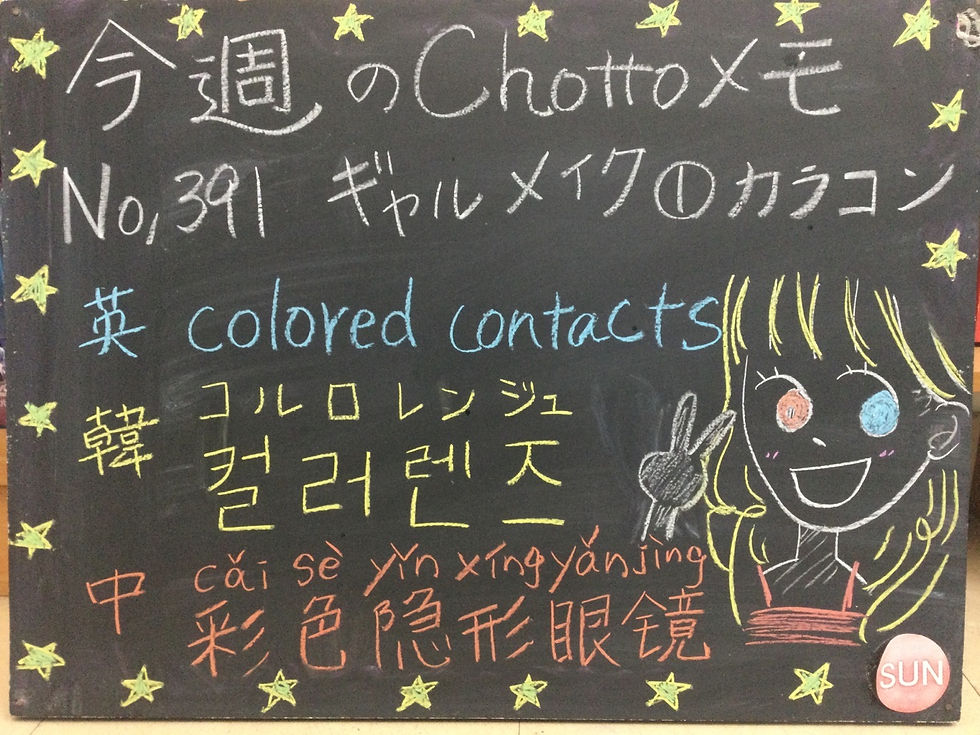 今週のChottoメモ
No,391 ギャルメイク①カラコン
英 colored contacts
コルロレンジュ
韓 컬러렌즈
cǎi sè yǐn xíng yǎn jìng
中 彩色隐形眼镜
SUN